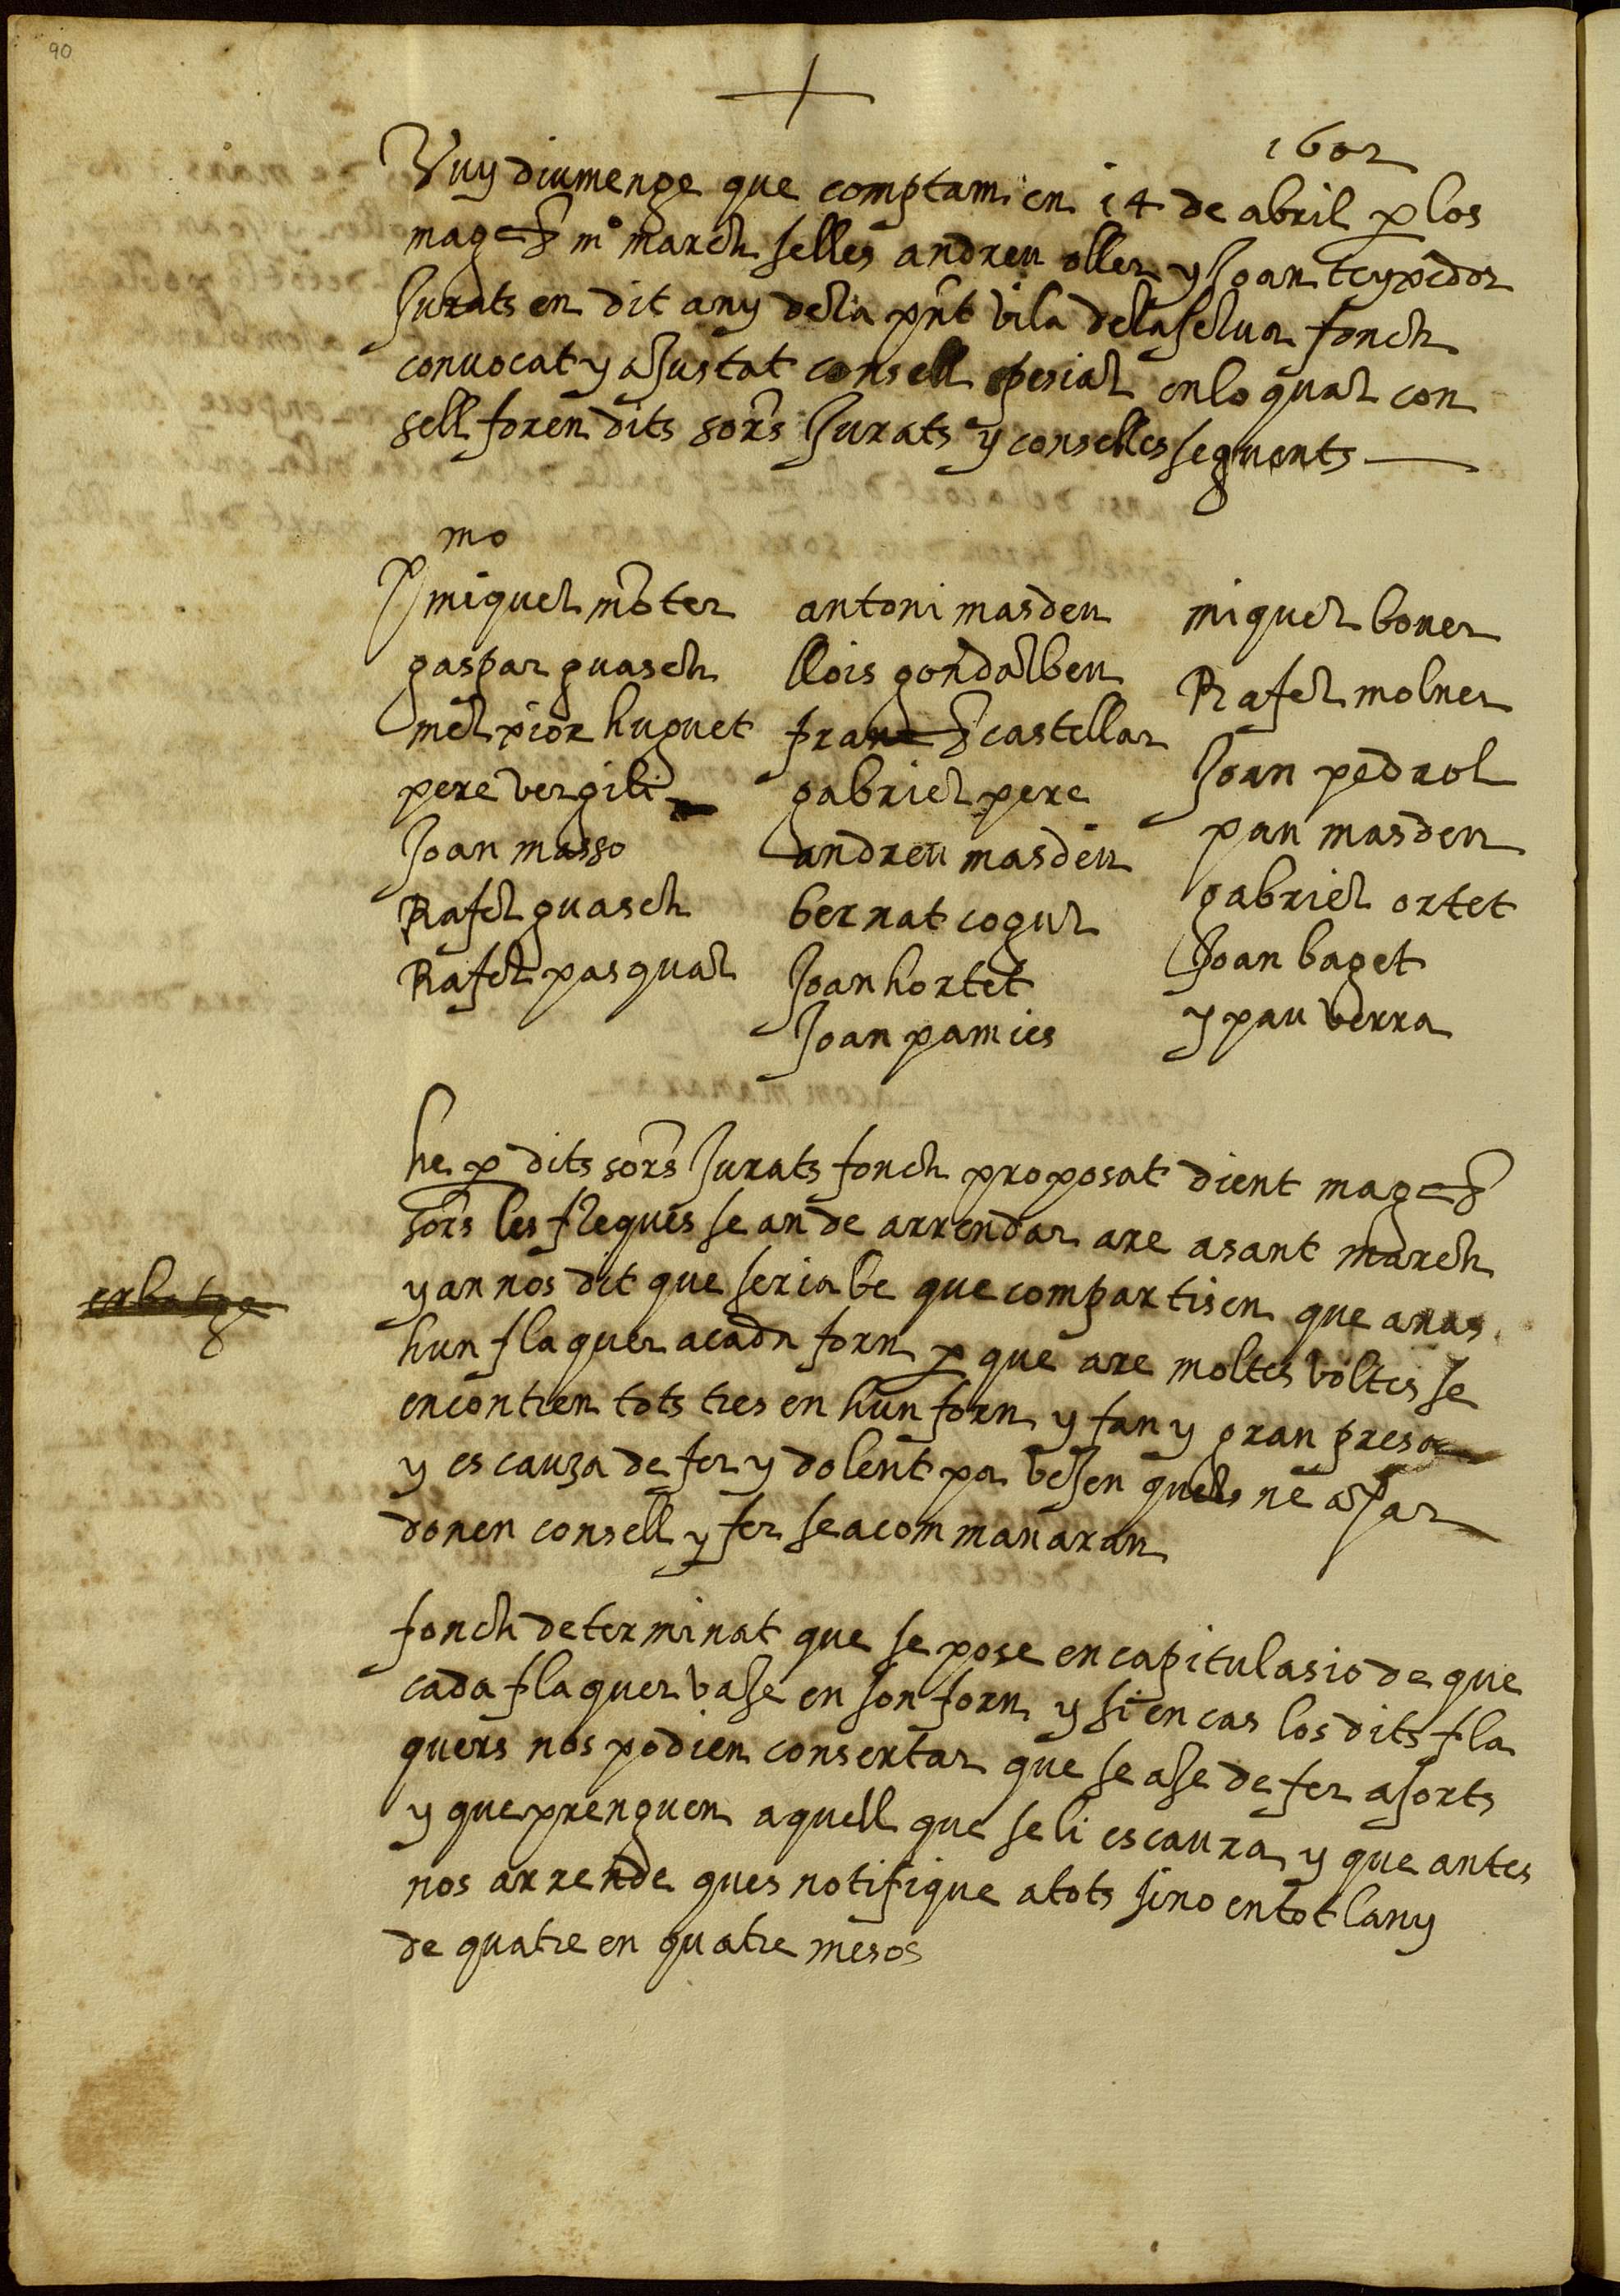 90
1602
Vuy diumenge que comptam en 14 de abril p los
mag.cs mº march selles andreu oller y Joan teyxidor
Jurats en dit any dela pnt vila delaselua fonch
convocat y aJustat consell spesial enlo qual con
sell foren dits sors Jurats y conselles seguents
mo
P miquel mōter
gaspar guasch
mel pior huguet
pere vergili
Joan masso
Rafel guasch
Rafel pasqual
antoni masdeu
llois gondalbeu
franc.s castellar
gabriel pere
andreu masdeu
bernat cogul
Joan hortet
Joan pamies
miquel bover
Rafel molner
Joan pedrol
pau masdeu
gabriel ortet
Joan baget
y pau verra
he p dits sors Jurats fonch proposat dient mag.cs
sors les flequés se an de arrendar are asant march
y an nos dit que seria be que compartisen que anas
erbatge
hun flaquer acada forn p que are moltes voltes se
encontren tots tres en hun forn y fan y gran presa
y es cauza de fer y dolent pa veJen quels ne apar
donen consell y fer se a com manaran
fonch determinat que se pose en capitulasio de que
cada flaquer vaJe en son forn y si en cas los dits fla
quers nos podien consertar que se aJe de fer asorts
y que prenguen aquell que se li escaura y que antes
nos arrende ques notifique atots sino en tot lany
de quatre en quatre mesos